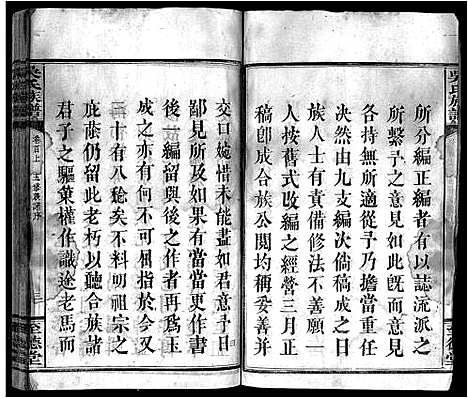 吳氏族譜
所分編正編者有以誌流派之
所繫予之意見亦無偏執僉
合持正所過從予乃竟其事
依然由九支編次倘稿成之日
族人士有責備修法不善願一
一人按舊式編之經營三月正
稿卽成合族公閱均稱妥善并
交口婉惜未能盡如君意予曰
鄙見所及如果有當當更作書
後一編留與後之作者再爲玉
成之可也不可屈指於今又
三十有八稔矣不料明祖宗之
庇蔭仍留此老朽以聽合族諸
君子之驅策權作識途老馬而
吳氏族譜
卷首上
五修族譜序
三
至德堂